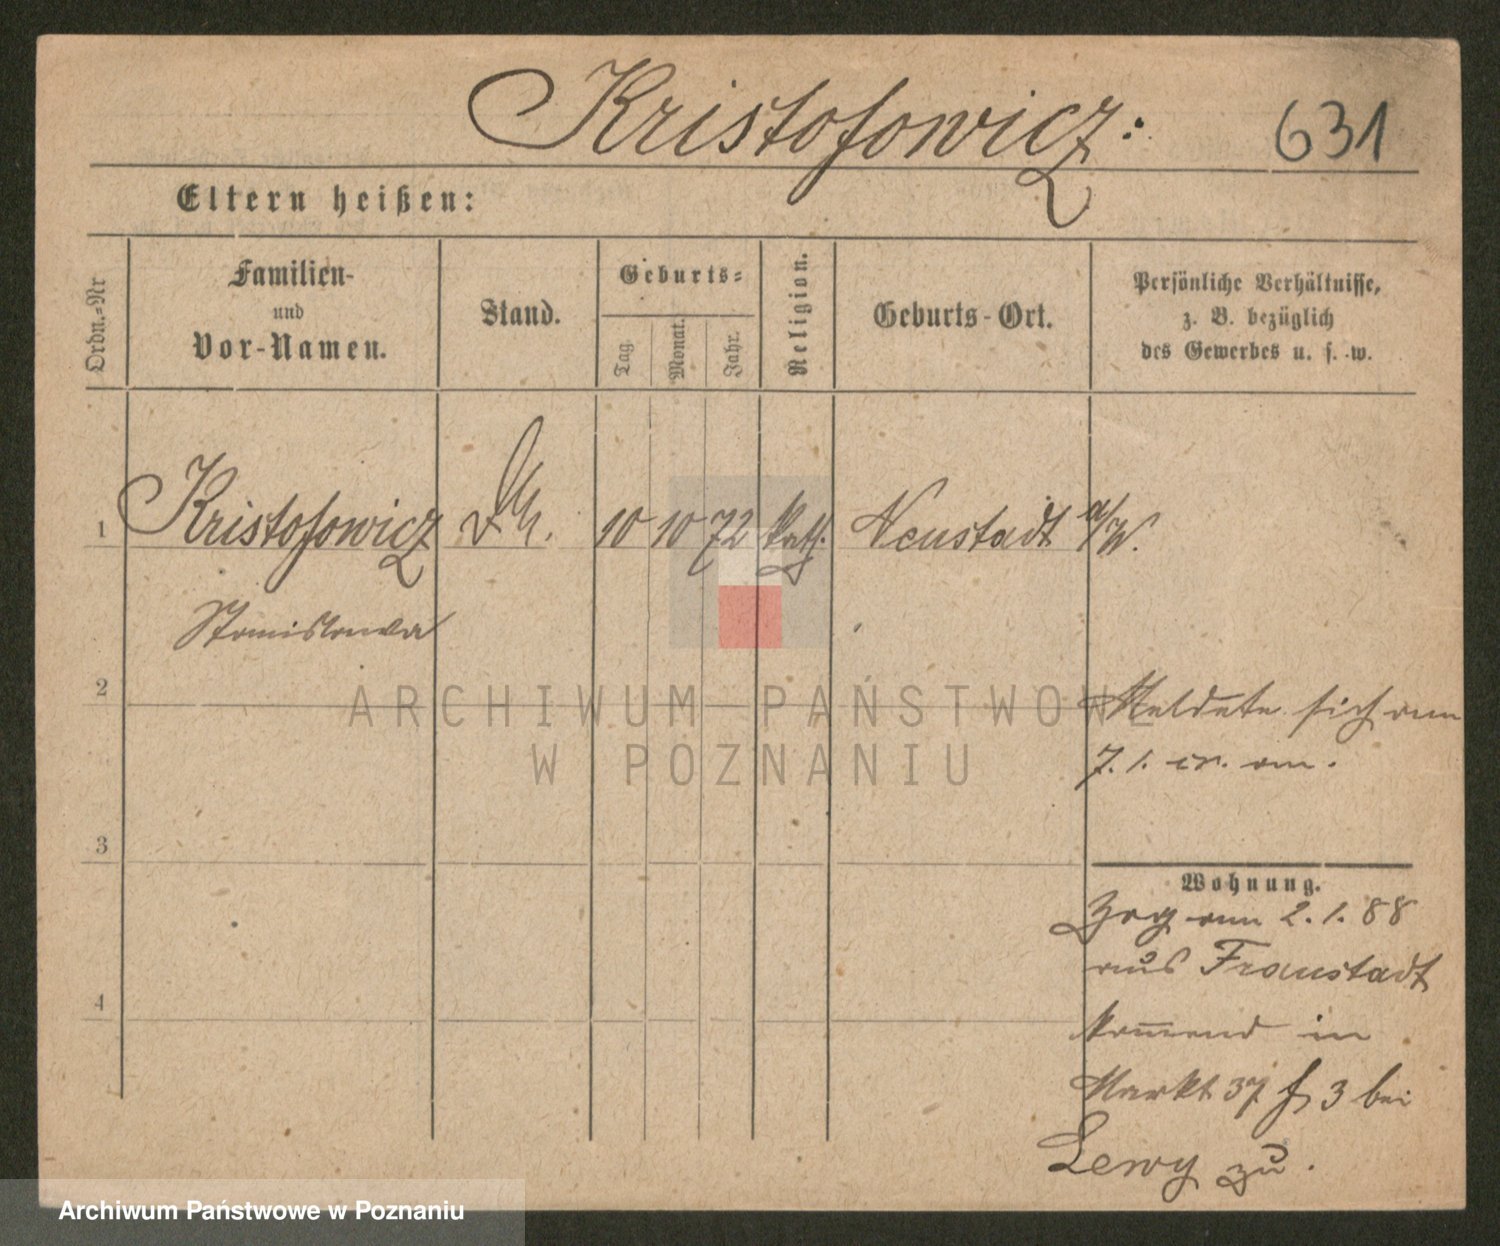 Kristofowicz:
631
Eltern heißen:
Ordn.-Nr
Familien-
und
Vor-Namen.
Stand.
Geburts-
Tag.
Monat.
Jahr.
Religion.
Geburts-Ort.
Persönliche Verhältnisse,
z. B. bezüglich
des Gewerbes u. s. w.
1 Kristofowicz 10 10 72 kath. Neustadt a/W.
Stanislawa
2
Meldete sich am
7. 1. cr. an.
ARCHIWUM PAŃSTWOWE
W POZNANIU
3
Wohnung.
Zog am 2. 1. 88
aus Fraustadt
kom̅end in
Markt 37 3 bei
Lewy zu.
4
Archiwum Państwowe w Poznaniu